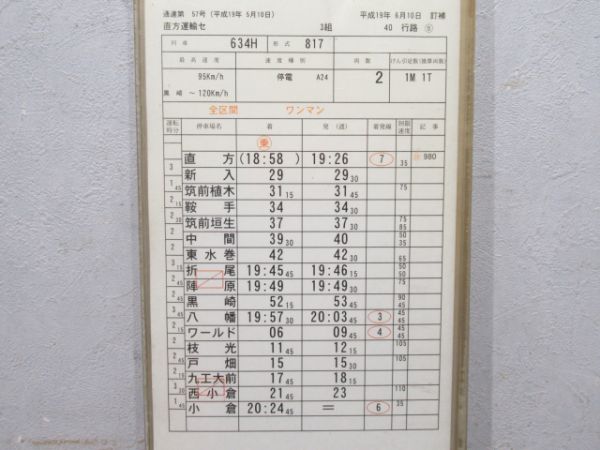 通達第 57号 (平成19年 5月10日) 平成19年 6月10日 訂補
直方運輸セ 3組 40 行路
列車 634H 形式 817
最高速度 速度種別 両数 けん引定数(換算両数)
95Km/h 停電 A24 2 1M 1T
黒崎 ～120Km/h
全区間 ワンマン
運転時分 停車場名 着 発(通) 着発線 制限速度 記事
東
直方 (18:58 ) 19:26 7 35 980
3 新入 29 29 30
1 45 筑前植木 31 15 31 45 75
2 15 鞍手 34 34 30
2 30 筑前垣生 37 37 30 75 85
2 中間 39 30 40 50 35
2 東水巻 42 42 30 65
3 15 折尾 19:45 45 19:46 15 50 50
2 45 陣原 19:49 19:49 30 75
2 45 黒崎 52 15 53 45 90 45
3 45 八幡 19:57 30 20:03 45 3 45 45
2 15 ワールド 06 09 45 4 45 45
2 枝光 11 45 12 15 105
2 45 戸畑 15 15 30 105
2 15 九工大前 17 45 18 15
3 30 西小倉 21 45 23 110
1 45 小倉 20:24 45 ＝ 6 35